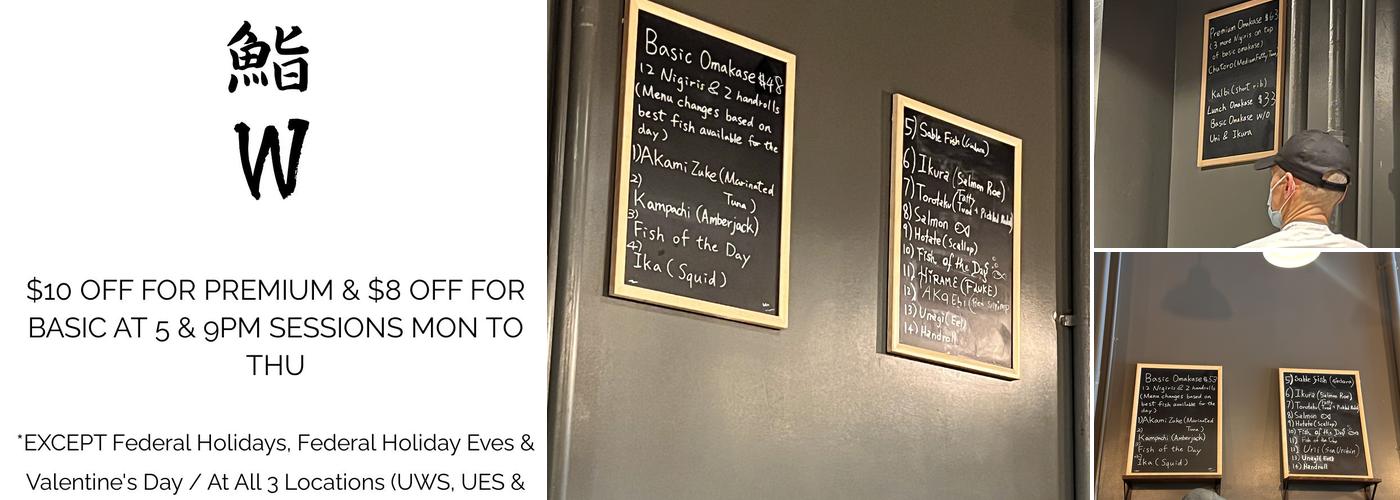 鮨
W
$10 OFF FOR PREMIUM & $8 OFF FOR
BASIC AT 5 & 9PM SESSIONS MON TO
THU
*EXCEPT Federal Holidays, Federal Holiday Eves &
Valentine's Day / At All 3 Locations (UWS, UES &
Basic Omakase $48
12 Nigiris & 2 handrolls
(Menu changes based on
best fish available for the
day)
1) Akami Zuke (Marinated
Tuna)
2)
Kampachi (Amberjack)
3)
Fish of the Day
4)
Ika (Squid)
5) Sable Fish (Gindara)
6) Ikura (Salmon Roe)
7) Torotaku (Fatty
Tuna + Pickled Radish)
8) Salmon
9) Hotate (Scallop)
10) Fish of the Day
11) HIRAME (FLUKE)
12) AKaEbi (Red Shrimp)
13) Unagi (Eel)
14) Handroll
Premium Omakase $63
(3 more Nigiris on top
of basic omakase)
Chutoro (Medium Fatty Tuna)
Kalbi (short rib)
Lunch Omakase $33
Basic Omakase w/o
Uni & Ikura
Basic Omakase $53
12 Nigiris & 2 handrolls
(Menu changes based on
best fish available for the
day)
1) Akami Zuke (Marinated
Tuna)
2)
Kampachi (Amberjack)
3)
Fish of the Day
4)
Ika (Squid)
5) Sable Fish (Gindara)
6) Ikura (Salmon Roe)
7) Torotaku (Fatty
Tuna + Pickled Radish)
8) Salmon
9) Hotate (Scallop)
10) Fish of the Day
11) Fish of the Day
12) Uni (Sea Urchin)
13) Unagi (Eel)
14) Handroll